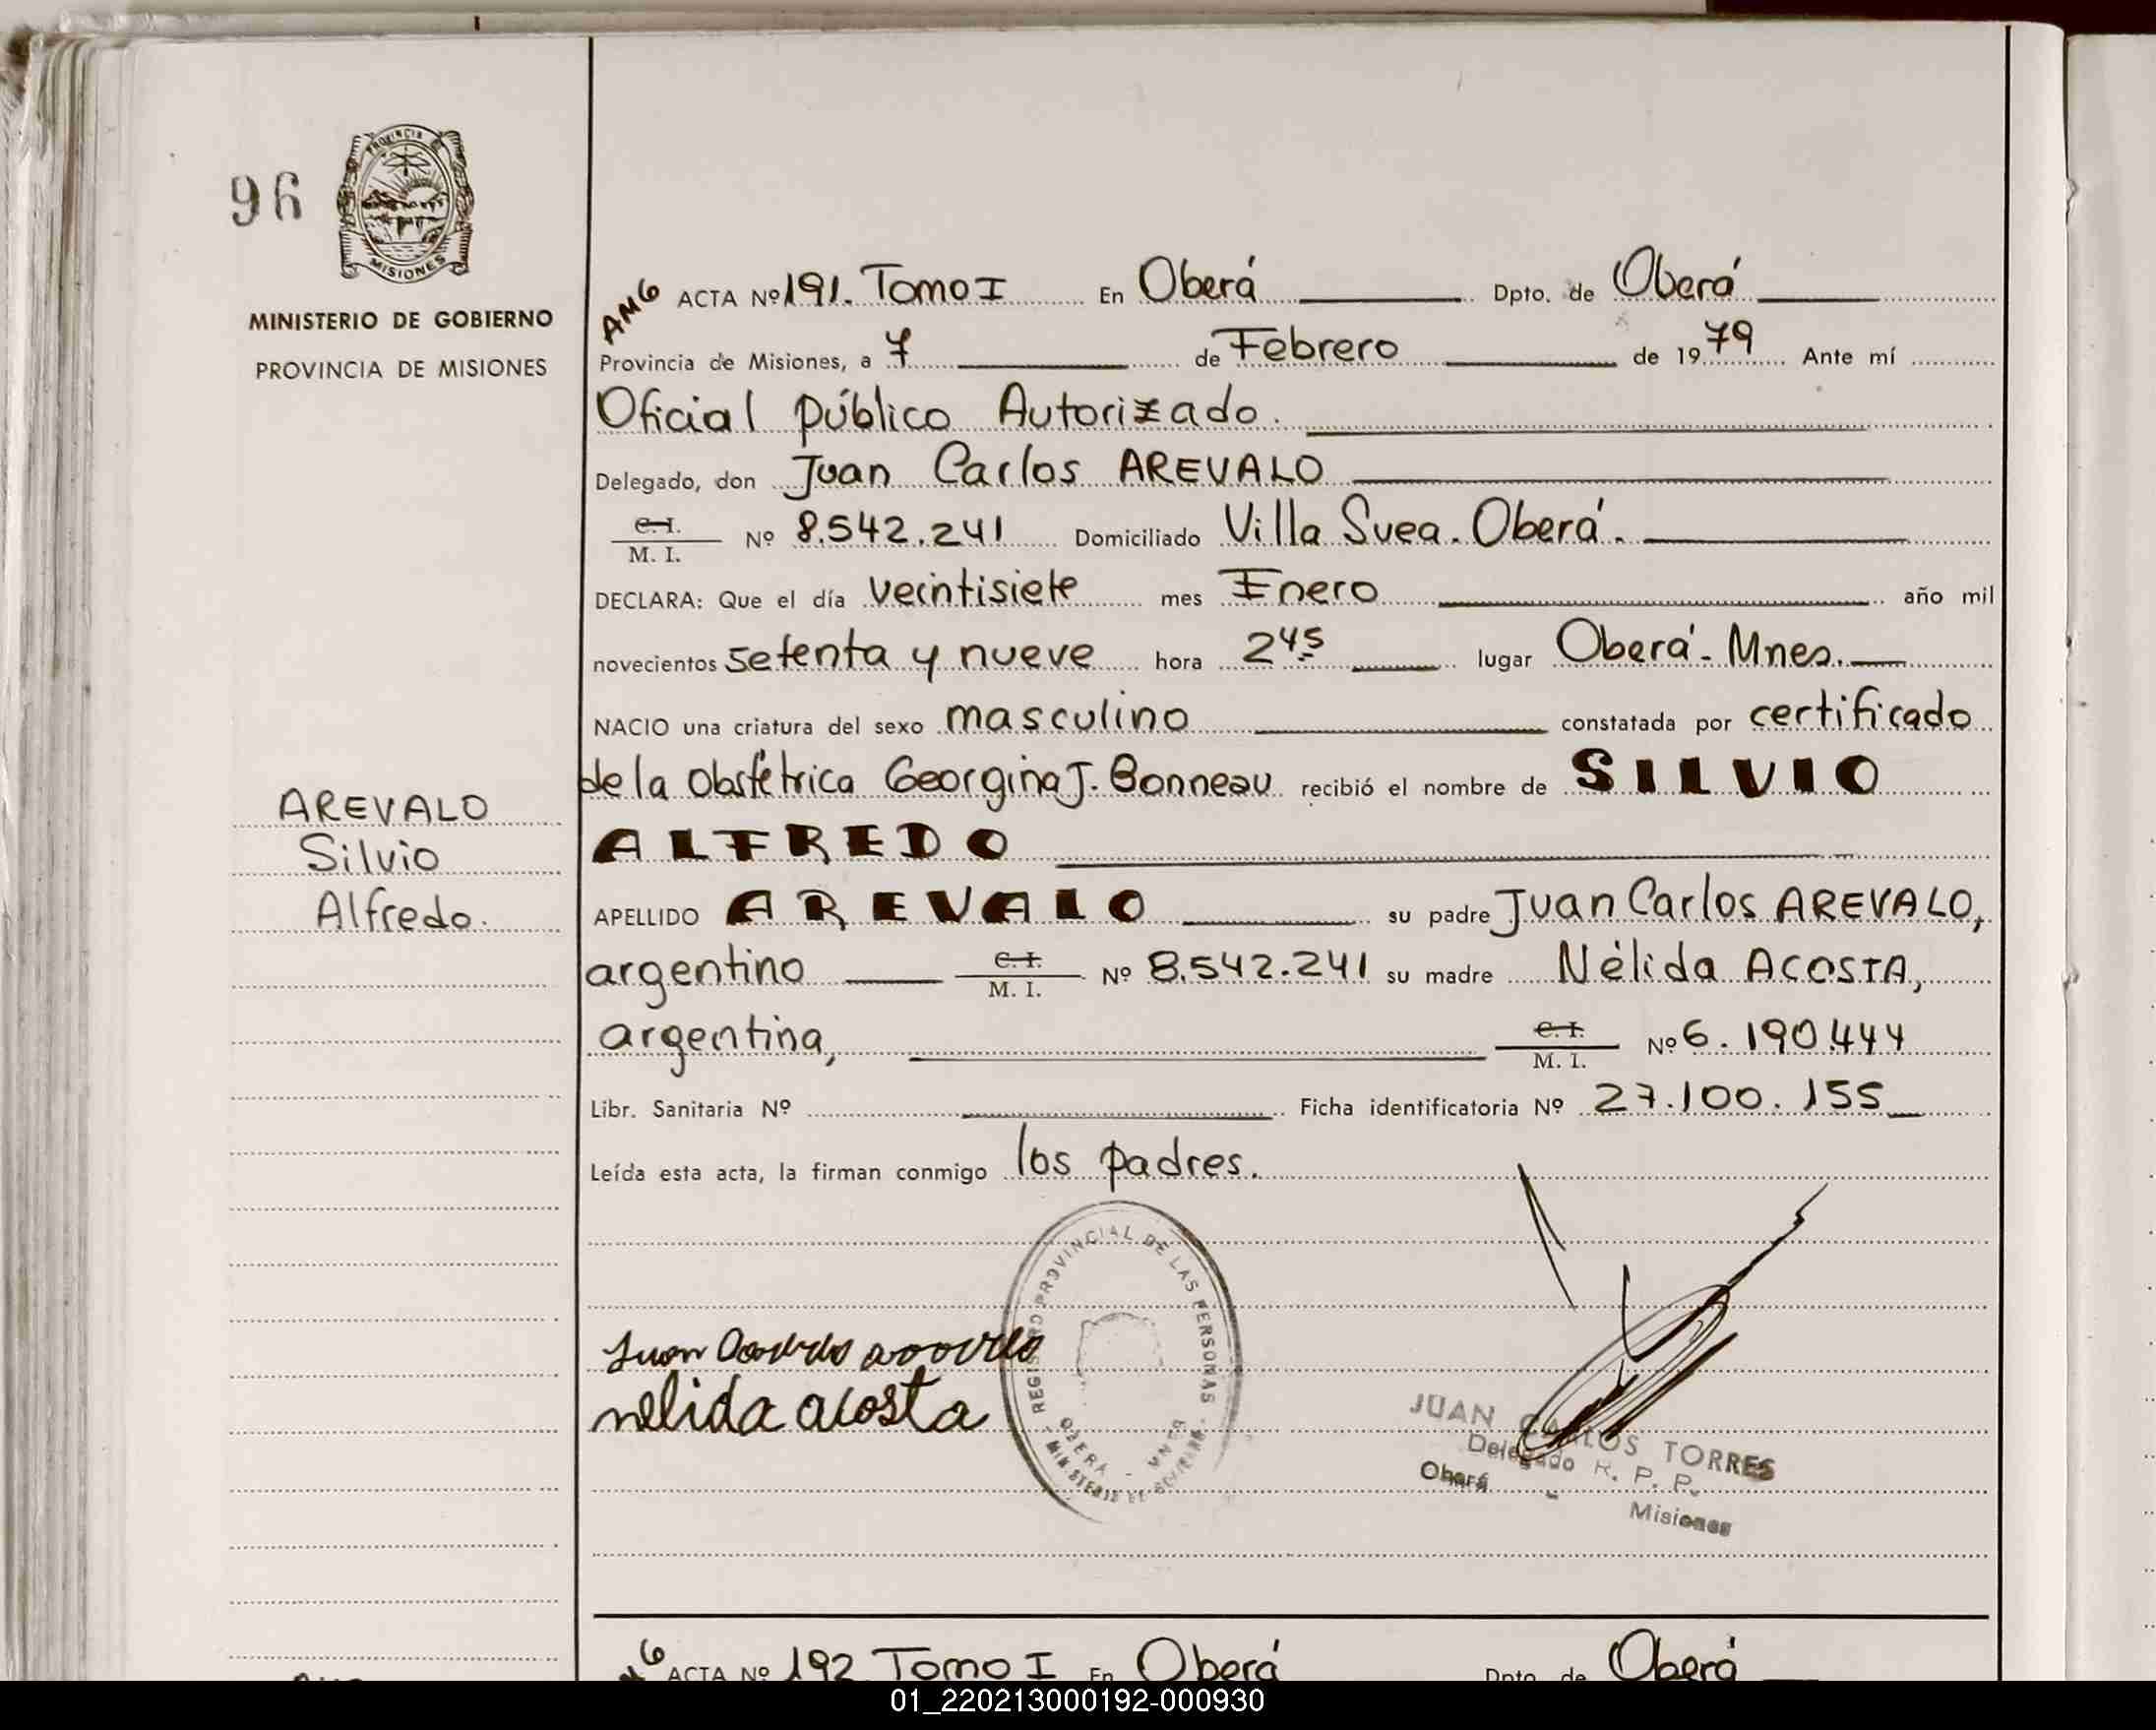 96
PROVINCIA
MISIONES
MINISTERIO DE GOBIERNO
PROVINCIA DE MISIONES
AMG
ACTA Nº 191. Tomo I En Oberá Dpto. de Oberá
Provincia de Misiones, a 7 de Febrero de 1979 Ante mí
Oficial Público Autorizado.
Delegado, don Juan Carlos AREVALO
C.I. M. I. Nº 8.542.241 Domiciliado Villa Svea. Oberá.
DECLARA: Que el día veintisiete mes Enero año mil
novecientos setenta y nueve hora 2 45 lugar Oberá - Mnes.
NACIO una criatura del sexo masculino constatada por certificado
de la Obstétrica Georgina J. Bonneau recibió el nombre de SILVIO
ALFREDO
APELLIDO AREVALO su padre Juan Carlos AREVALO,
argentino C.I. M. I. Nº 8.542.241 su madre Nélida ACOSTA,
argentina, C.I. M. I. Nº 6.190.444
Libr. Sanitaria Nº Ficha identificatoria Nº 27.100.155
Leída esta acta, la firman conmigo los padres.
AREVALO
Silvio
Alfredo.
REGISTRO PROVINCIAL DE LAS PERSONAS
OBERA - MNES
MINISTERIO DE GOBIERNO
Juan
nelida acosta
JUAN CARLOS TORRES
Delegado R. P. P.
Oberá - Misiones
ACTA Nº 192 Tomo I En Oberá Dpto. de Oberá
01_220213000192-000930